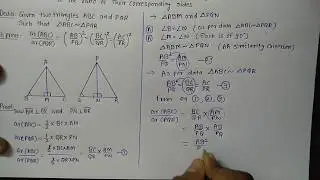 the Ratio of their corresponding sides
Given two triangles ABC and PQR
Such that △ABC ~ △PQR
ar(ABC)/ar(PQR) = (AB/PQ)² = (BC/QR)² = (AC/PR)²
A
P
B
M
C
Q
N
R
Proof:
AM ⊥ BC and PN ⊥ QR
ar(ABC) = 1/2 × BC × AM
ar(PQR) = 1/2 × QR × PN
ar(ABC)/ar(PQR) = BC/QR × AM/PN -①
→ △ABM and △PQN
∠B = ∠Q (As per data △ABC ~ △PQR)
∠M = ∠N (Each is of 90°)
△ABM ~ △PQN (AA Similarity criterion)
AB/PQ = AM/PN
→ As per data △ABC ~ △PQR
AB/PQ = BC/QR = AC/PR
ar(ABC)/ar(PQR) = BC/QR × AM/PN
= AB/PQ × AB/PQ
= AB²